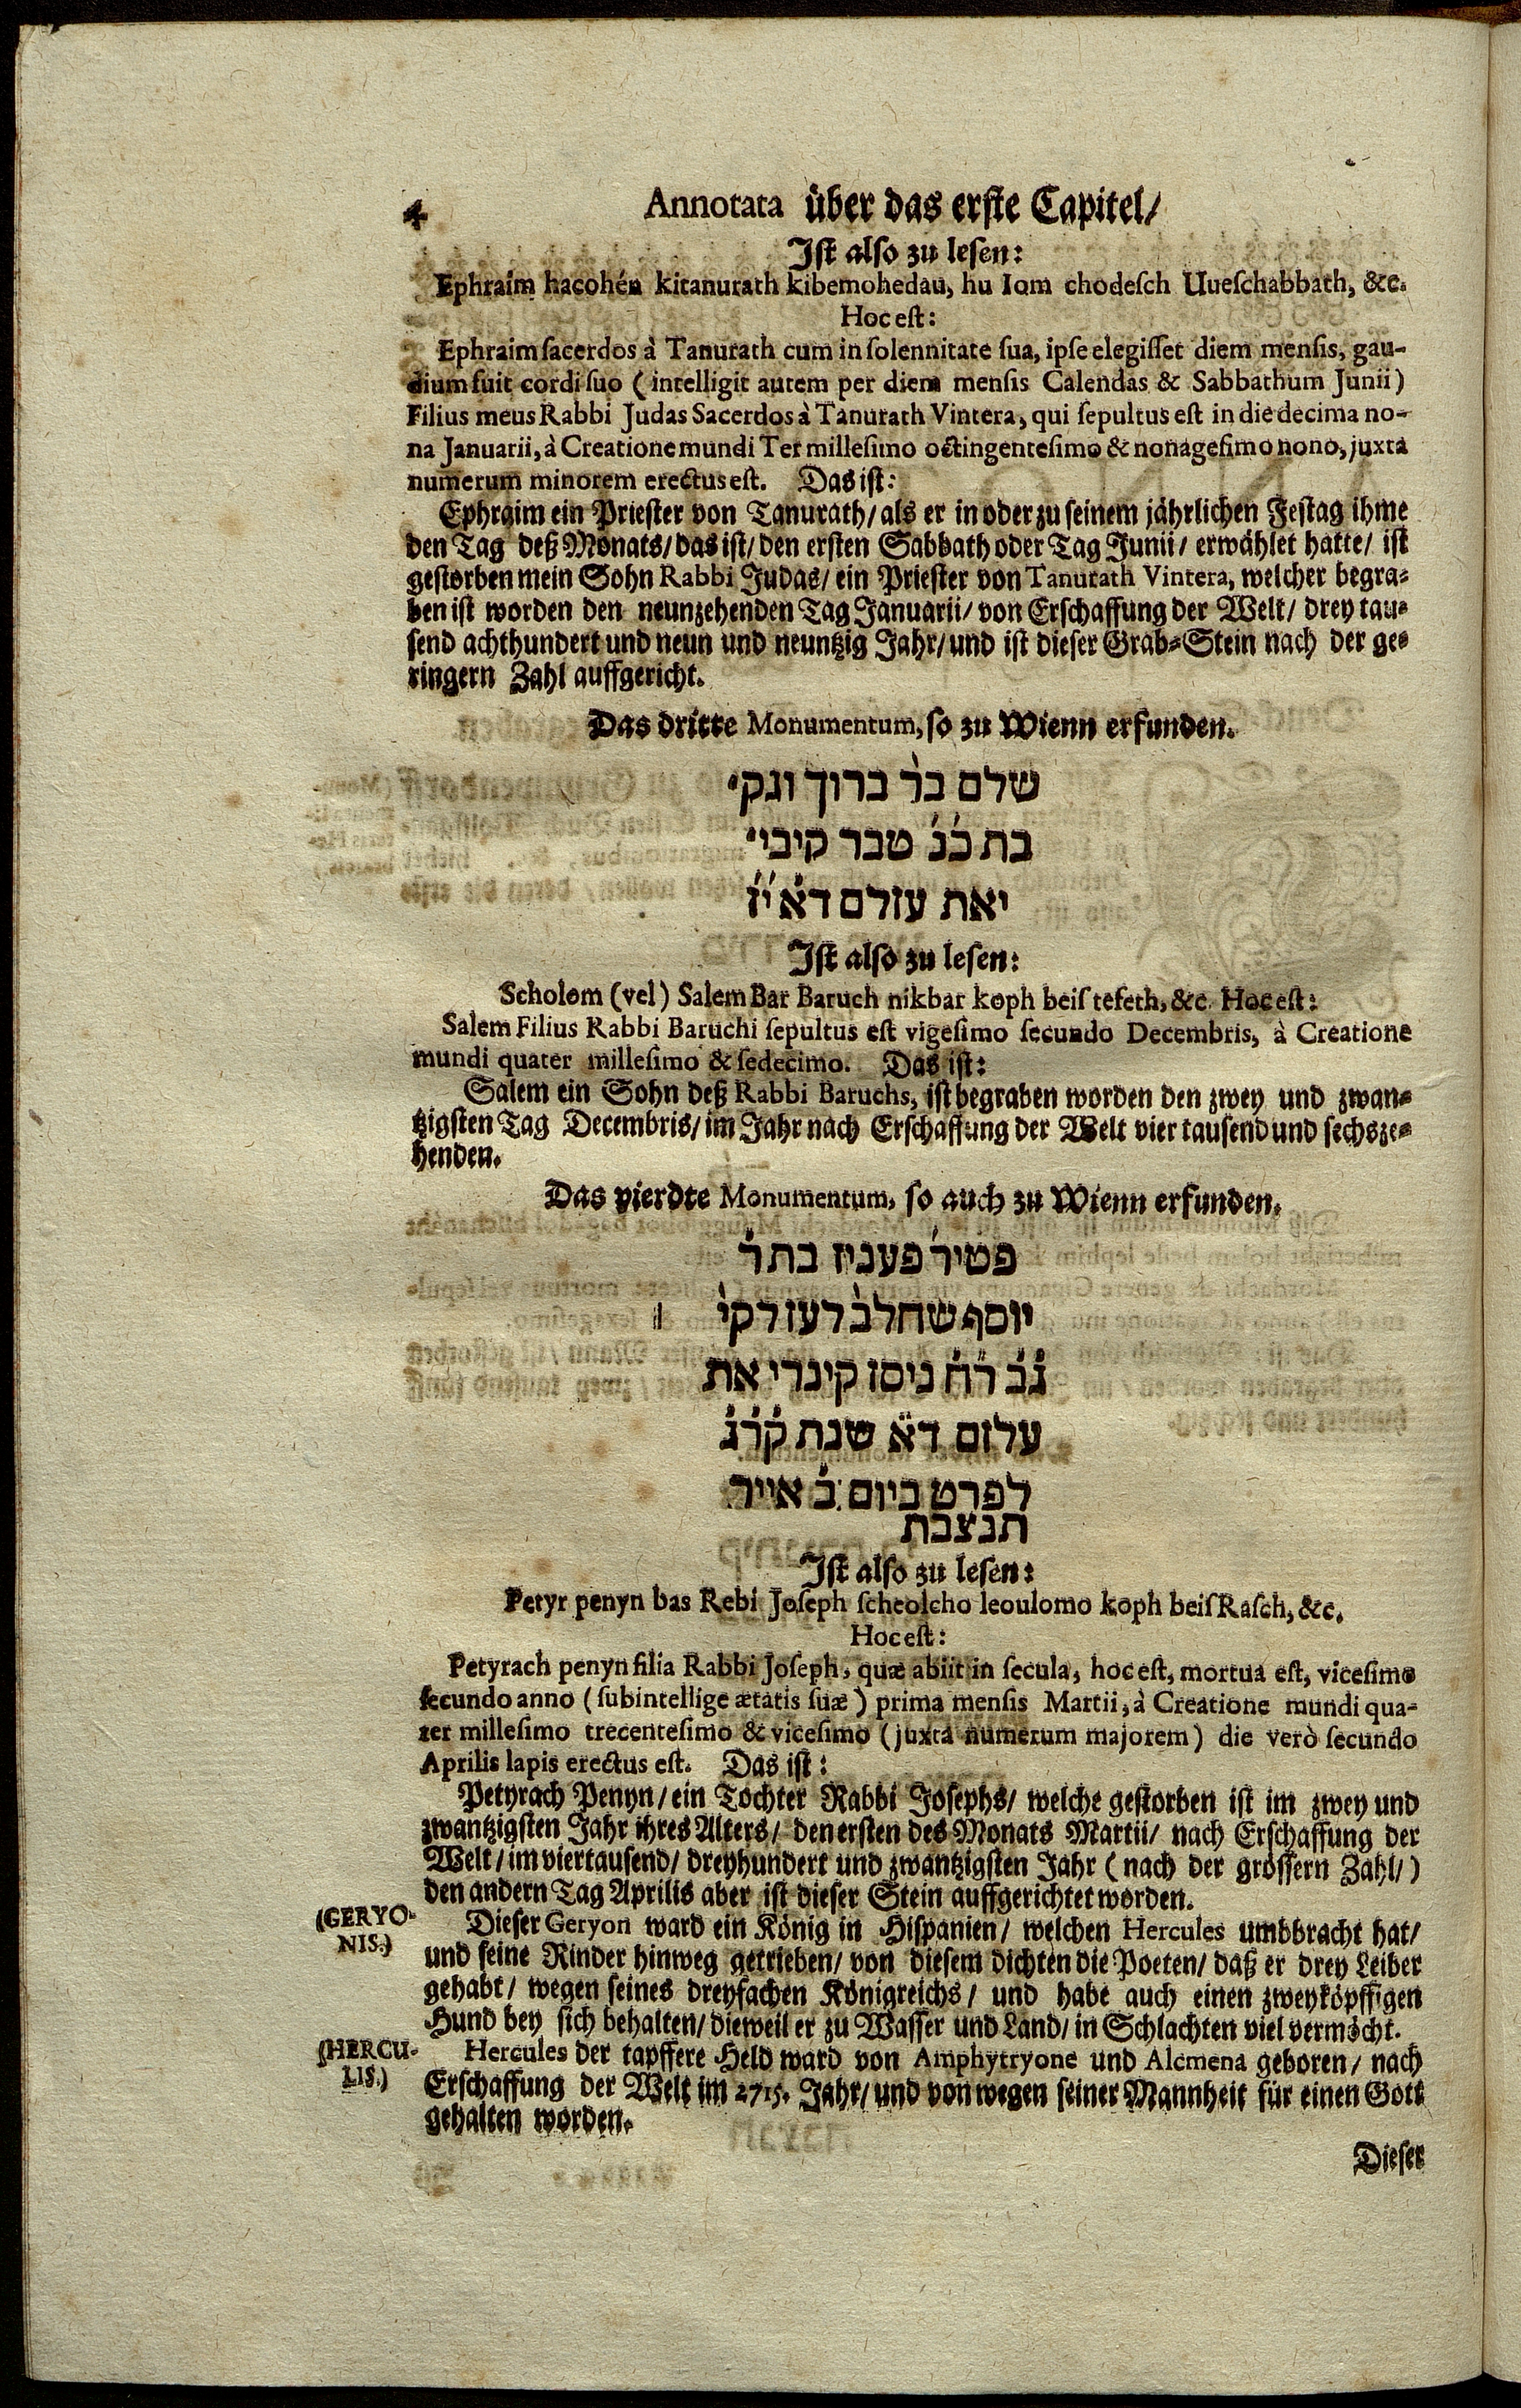 4 Annotata über das erste Capitel/
Ist also zu lesen:
Ephraim hacohén kitanurath kibemohedau, hu Iom chodesch Uueschabbath, &c.
Hoc est:
Ephraim sacerdos à Tanurath cum in solennitate sua, ipse elegisset diem mensis, gau-
dium fuit cordi suo (intelligit autem per diem mensis Calendas & Sabbathum Junii)
Filius meus Rabbi Judas Sacerdos à Tanurath Vintera, qui sepultus est in die decima no-
na Januarii, à Creatione mundi Ter millesimo octingentesimo & nonagesimo nono, juxta
numerum minorem erectus est. Das ist:
Ephraim ein Priester von Tanurath/ als er in oder zu seinem jährlichen Festag ihme
den Tag deß Monats/ das ist/ den ersten Sabbath oder Tag Junii/ erwählet hatte/ ist
gestorben mein Sohn Rabbi Judas/ ein Priester von Tanurath Vintera, welcher begra-
ben ist worden den neunzehenden Tag Januarii/ von Erschaffung der Welt/ drey tau-
send achthundert und neun und neuntzig Jahr/ und ist dieser Grab-Stein nach der ge-
ringern Zahl auffgericht.
Das dritte Monumentum, so zu Wienn erfunden.
שלם בר׳ ברוך ונק׳
בת כ׳נ׳ טבר קיבי׳
יאת עזלם ד׳א׳ י׳ז׳
Ist also zu lesen:
Scholom (vel) Salem Bar Baruch nikbar koph beis tefeth, &c. Hoc est:
Salem Filius Rabbi Baruchi sepultus est vigesimo secundo Decembris, à Creatione
mundi quater millesimo & sedecimo. Das ist:
Salem ein Sohn deß Rabbi Baruchs, ist begraben worden den zwey und zwan-
tzigsten Tag Decembris/ im Jahr nach Erschaffung der Welt vier tausend und sechsze-
henden.
Das vierdte Monumentum, so auch zu Wienn erfunden.
פטיר׳ פענין בת ר׳
יוסף שחלב׳ לעז לקי׳
נ׳ב׳ ר׳ח׳ ניסן קינרי את
עלזם ד׳א׳ שנת ק׳ר׳נ׳
לפרט ביום ב׳ אייר
תנצבת
Ist also zu lesen:
Petyr penyn bas Rebi Joseph scheolcho leoulomo koph beis Rasch, &c.
Hoc est:
Petyrach penyn filia Rabbi Joseph, quæ abiit in secula, hoc est, mortua est, vicesimo
secundo anno (subintellige ætatis suæ) prima mensis Martii, à Creatione mundi qua-
ter millesimo trecentesimo & vicesimo (juxta numerum majorem) die verò secundo
Aprilis lapis erectus est. Das ist:
Petyrach Penyn/ ein Tochter Rabbi Josephs/ welche gestorben ist im zwey und
zwantzigsten Jahr ihres Alters/ den ersten des Monats Martii/ nach Erschaffung der
Welt/ im viertausend/ dreyhundert und zwantzigsten Jahr (nach der grössern Zahl/)
den andern Tag Aprilis aber ist dieser Stein auffgerichtet worden.
(GERYO-
NIS.)
Dieser Geryon ward ein König in Hispanien/ welchen Hercules umbbracht hat/
und seine Rinder hinweg getrieben/ von diesem dichten die Poeten/ daß er drey Leiber
gehabt/ wegen seines dreyfachen Königreichs/ und habe auch einen zweyköpffigen
Hund bey sich behalten/ dieweil er zu Wasser und Land/ in Schlachten viel vermöcht.
(HERCU-
LIS.)
Hercules der tapffere Held ward von Amphytryone und Alcmena geboren/ nach
Erschaffung der Welt im 2715. Jahr/ und von wegen seiner Mannheit für einen Gott
gehalten worden.
Dieser